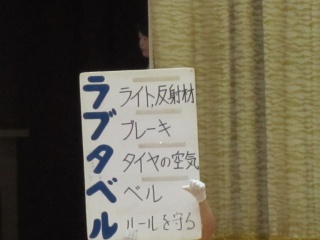 ラブタベル
ライト,反射材
ブレーキ
タイヤの空気
ベル
ルールを守ろ